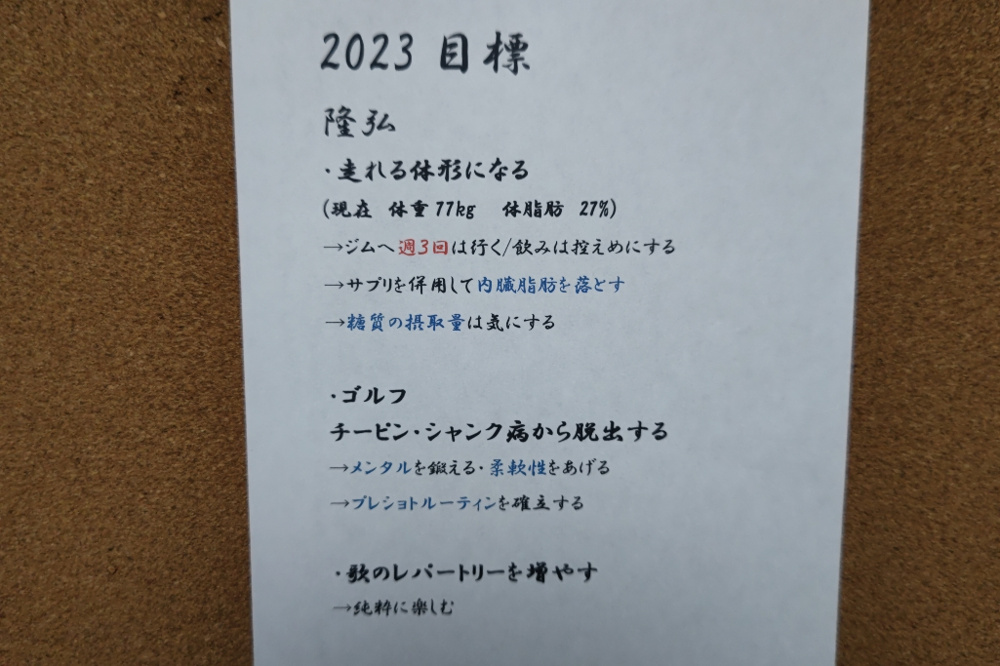 2023 目標
隆弘
・走れる体形になる
(現在 体重77kg 体脂肪 27%)
→ジムへ週3回は行く/飲みは控えめにする
→サプリを併用して内臓脂肪を落とす
→糖質の摂取量は気にする
・ゴルフ
チーピン・シャンク病から脱出する
→メンタルを鍛える・柔軟性をあげる
→プレショトルーティンを確立する
・歌のレパートリーを増やす
→純粋に楽しむ